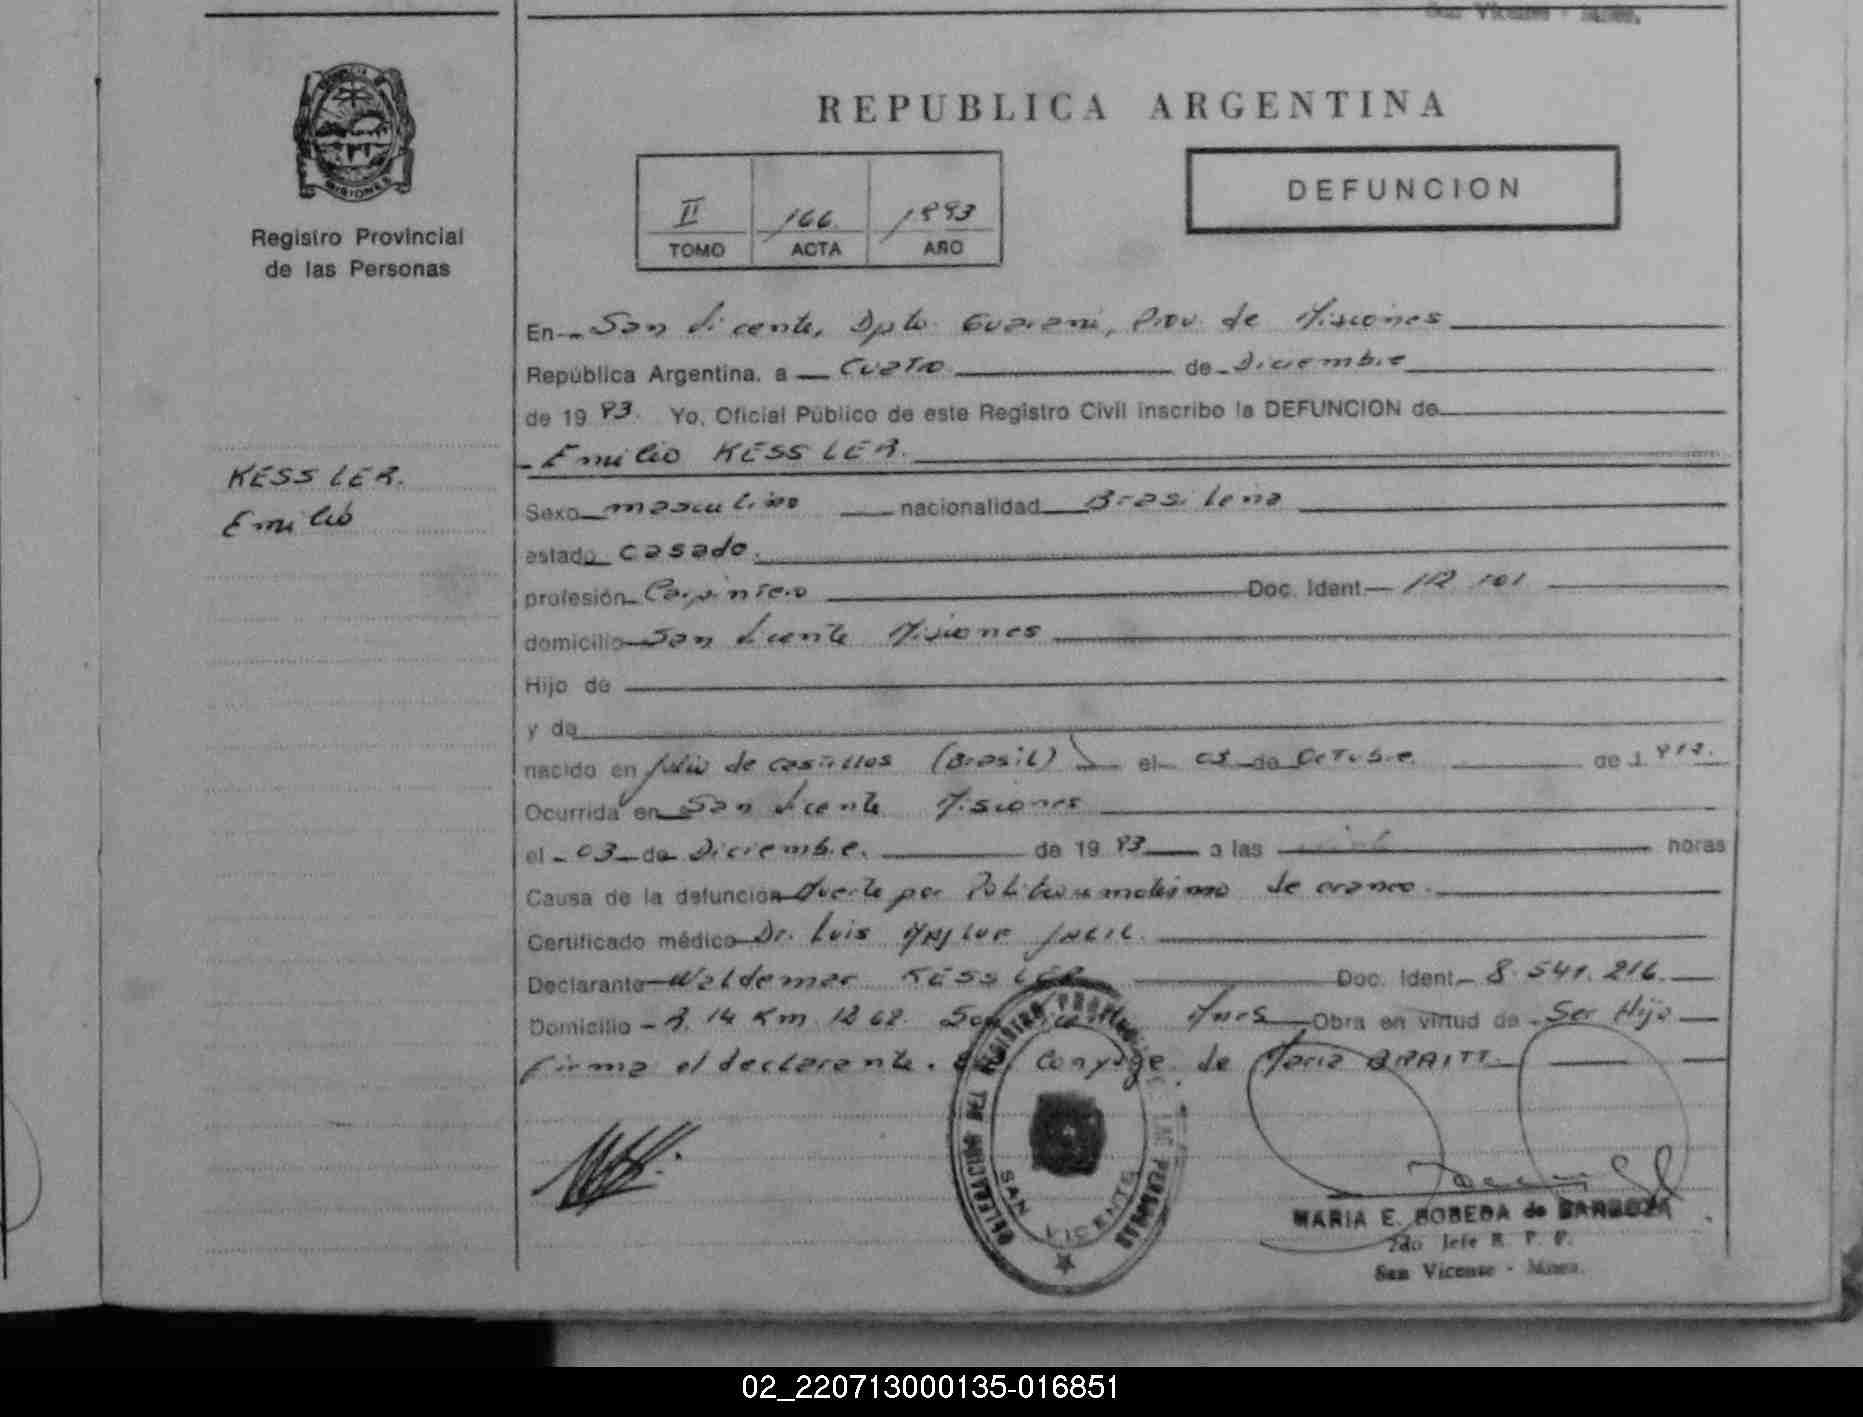 San Vicente - Mnes.
REPUBLICA ARGENTINA
DEFUNCION
PROVINCIA DE
MISIONES
Registro Provincial
de las Personas
II 166 1993
TOMO ACTA AÑO
En San Vicente, Dpto. Guarani, Prov. de Misiones
República Argentina, a Cuatro de Diciembre
de 19 93. Yo, Oficial Público de este Registro Civil inscribo la DEFUNCION de
Emilio KESSLER.
KESSLER.
Emilio
Sexo masculino nacionalidad Brasileña
estado casado.
profesión Carpintero Doc. Ident.
domicilio San Vicente Misiones
Hijo de
y de
nacido en Julio de castillos (Brasil) el 03 de Octubre de 1
Ocurrida en San Vicente Misiones
el 03 de Diciembre. de 19 93 a las horas
Causa de la defunción Muerte por Politraumatismo de craneo.
Certificado médico Dr. Luis
Declarante Waldemar KESSLER Doc. Ident. 8.541.216.
Domicilio R. 14 Km 1262. San Mnes Obra en virtud de Ser Hijo
Firma el declarante. Conyuge de Maria BRAITT.
SAN VICENTE
MARIA E. BOBEDA de BARBOZA
2do Jefe R. P. P.
San Vicente - Mnes.
02_220713000135-016851